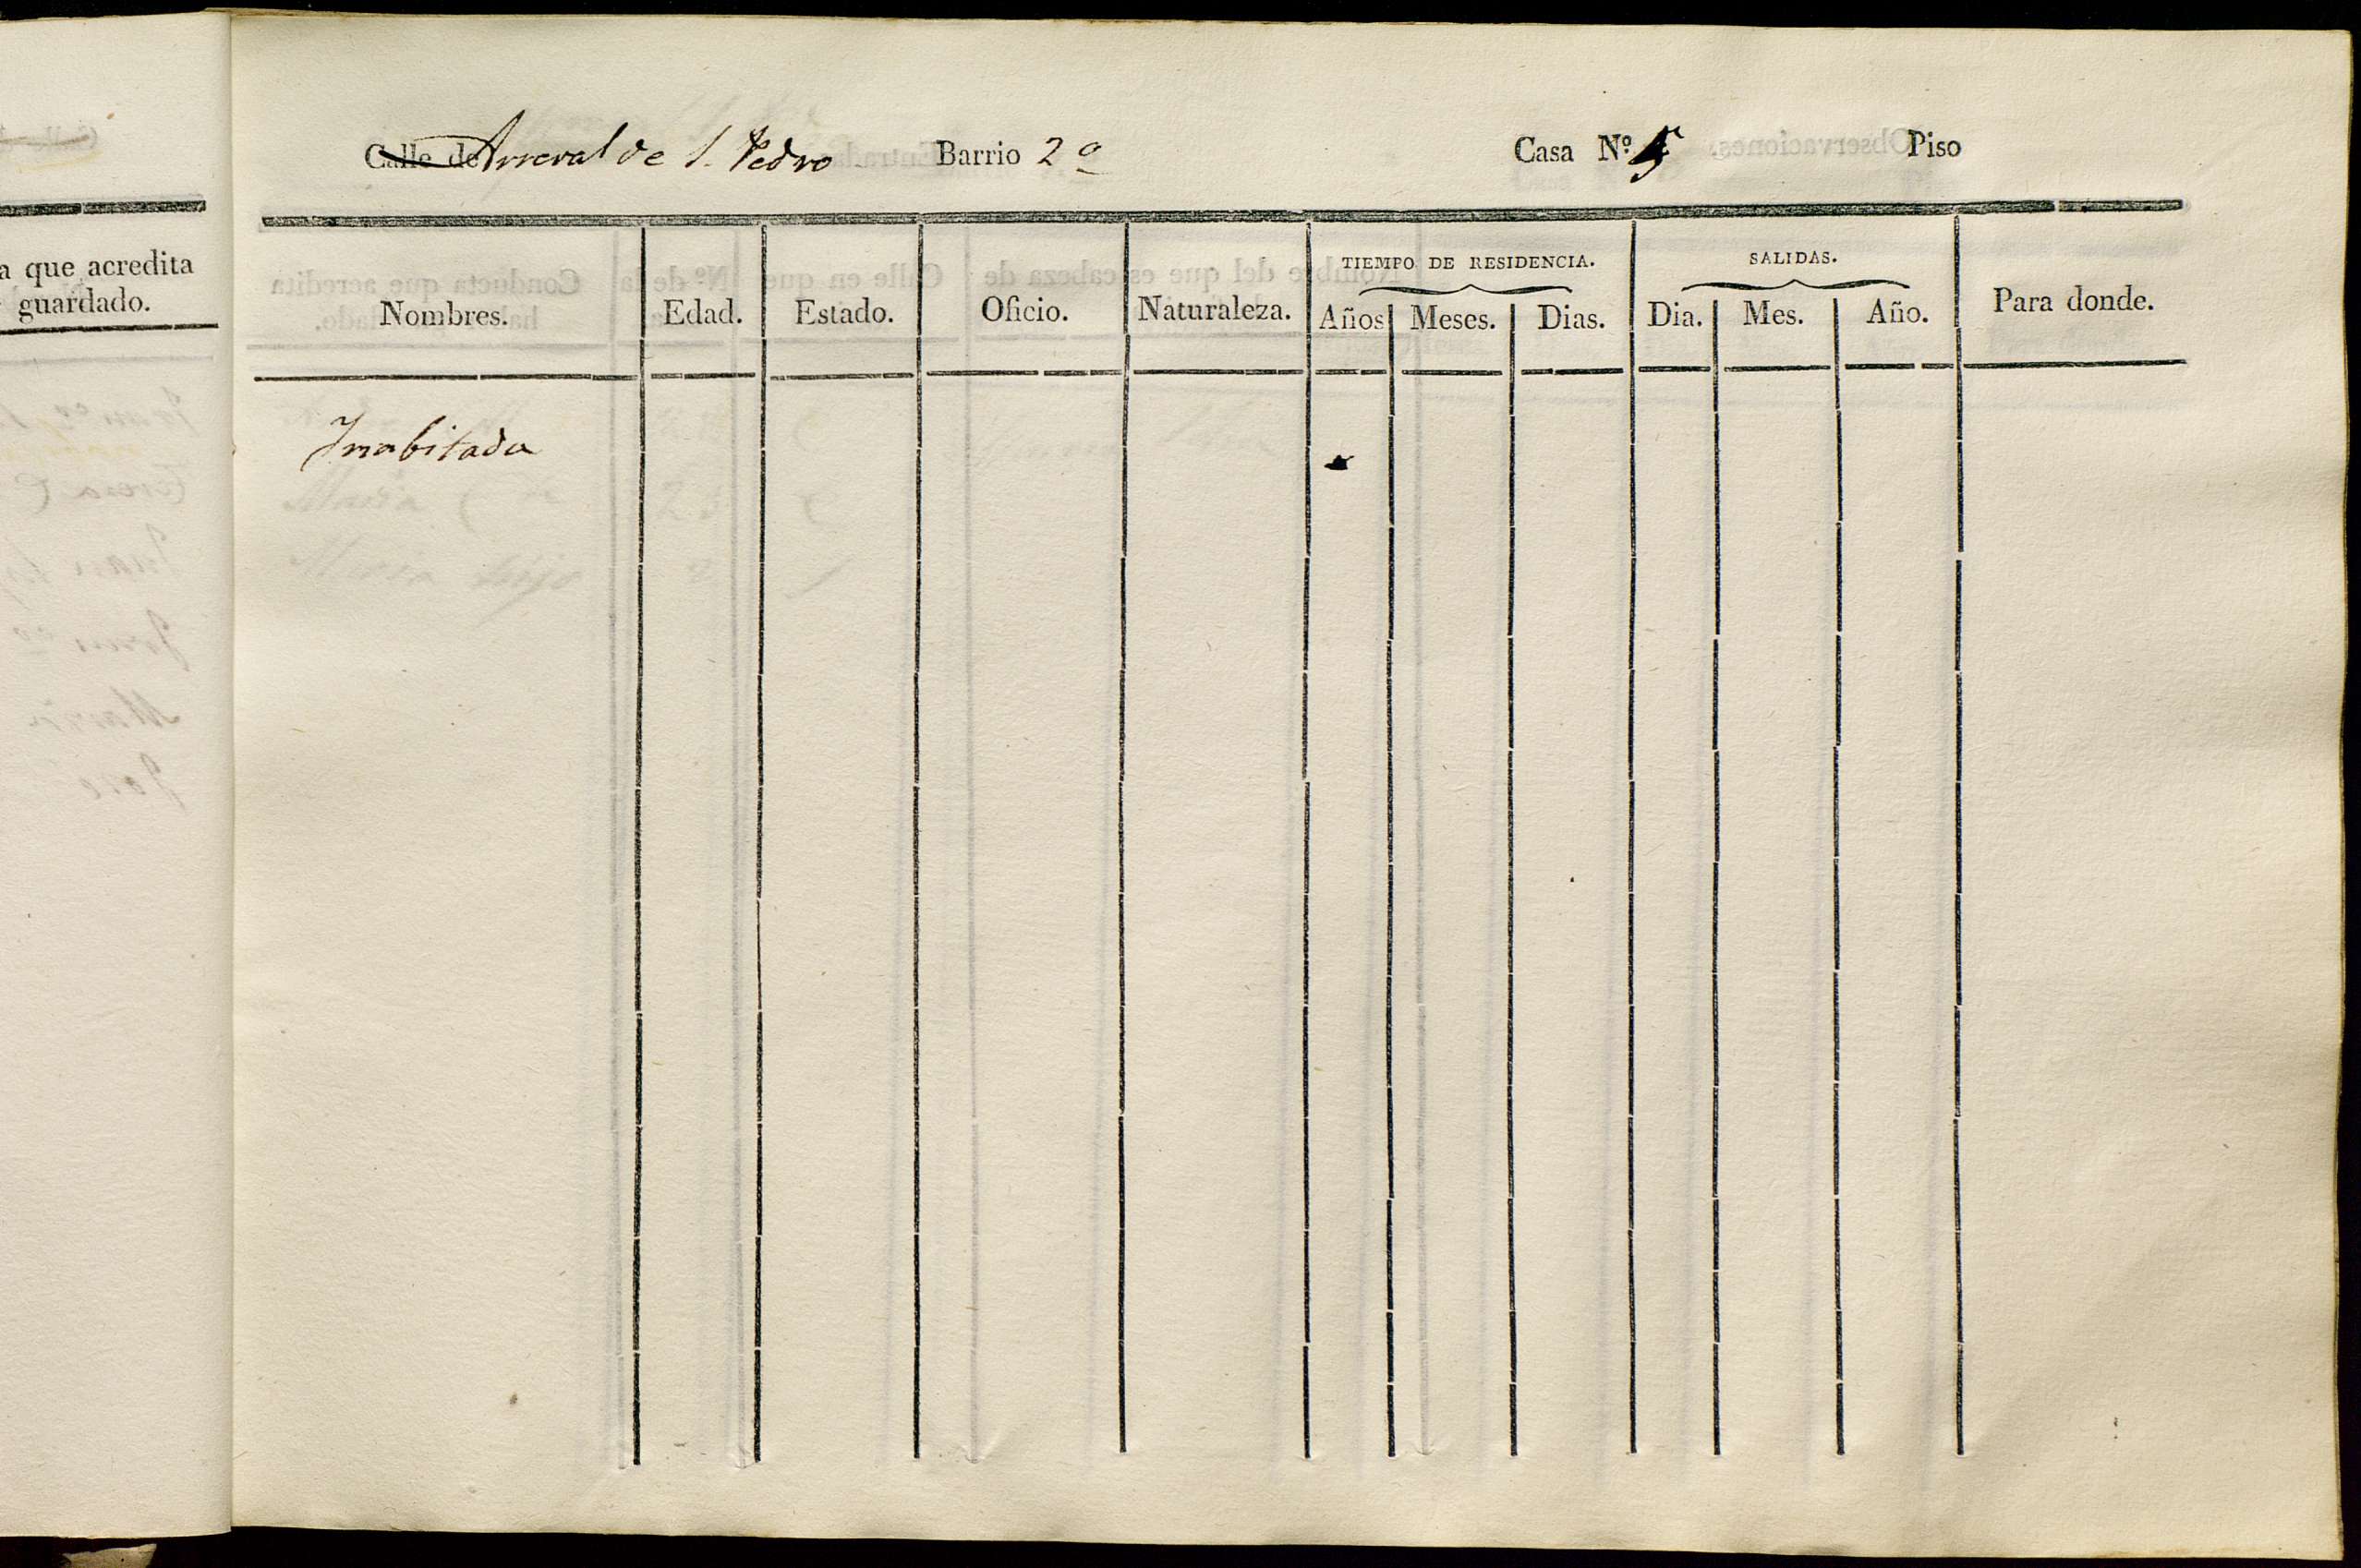 a que acredita
guardado.
Calle de Arreval de S. Pedro Barrio 2º Casa Nº. 5 Piso
Nombres. Edad. Estado. Oficio. Naturaleza. TIEMPO DE RESIDENCIA. Años Meses. Dias. SALIDAS. Dia. Mes. Año. Para donde.
Inabitada